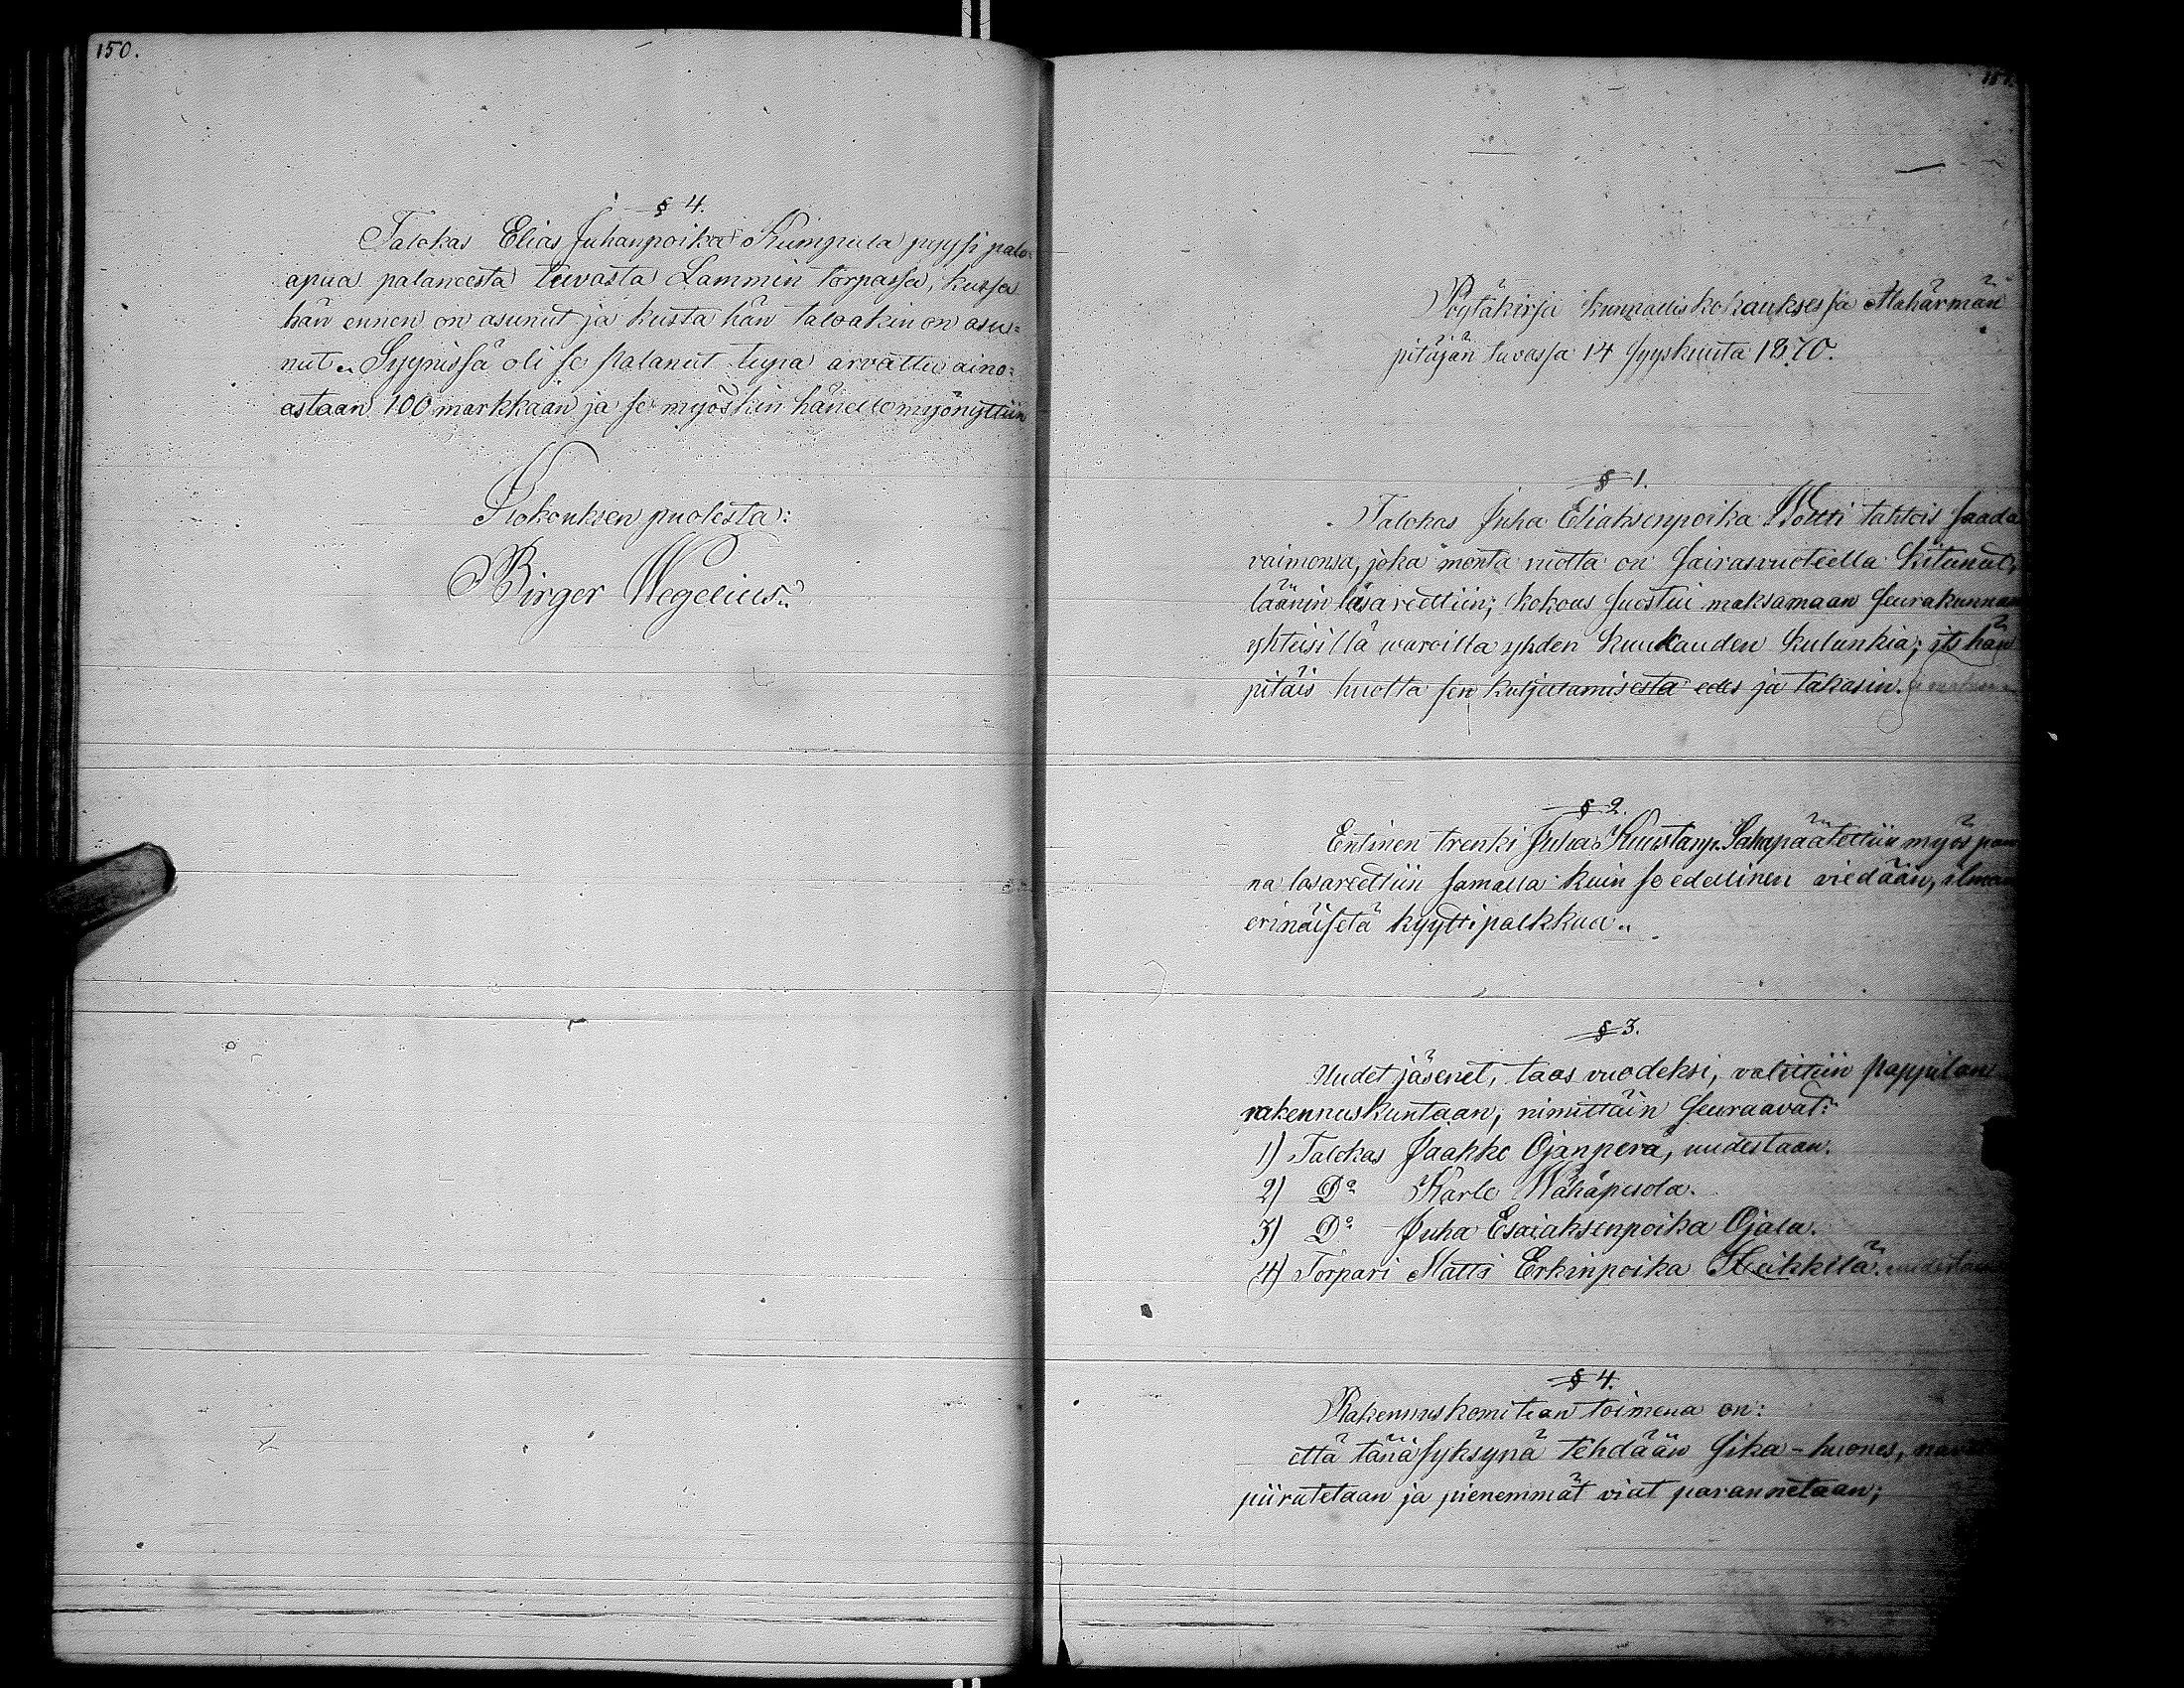 150.
§ 4.
Talokas Elias Juhanpoika Kumpula pyysi palo=
apua palaneesta tuvasta Lammin torpassa, kussa
hän ennen on asunut ja kusta hän taloakin on asu=
nut. Syynissä oli se palanut tupa arvattu aino=
astaan 100 markkaan ja se myöskin hänelle myönyttiin
Kokouksen puolesta:
Birger Wegelius.
151.
Pöytäkirja kunnalliskokouksessa Alahärmän
pitäjän tuvassa 14 syyskuuta 1870.
§ 1.
Talokas Juha Eliaksenpoika Woltti tahtois saada
vaimonsa, joka monta vuotta on sairasvuoteella kitunut,
läänin lasarettiin; kokous suostui maksamaan seurakunnan
yhteisillä waroilla yhden kuukauden kulunkia; its hän
pitäis huolta sen kuljetamisesta edes ja takasin.
§ 2.
Entinen trenki Juha Kuustanp. Saha päätettiin myös pan
na lasarettiin samalla kuin se edellinen viedään, ilman
erinäisetä kyyttipalkkua.
§ 3.
Uudet jäsenet, taas vuodeksi, valittiin pappilan
rakennuskuntaan, nimittäin seuraavat:
1) Talokas Jaakko Ojanperä, uudestaan.
2) Do Karlo Wähäpesola.
3) Do Juha Esaiaksenpoika Ojala.
4) Torpari Matti Erkinpoika Heikkilä. uudestaan
§ 4.
Rakennuskomitean toimena on:
että tänä syksynä tehdään sika-huones,
piiratetaan ja pienemmät viat parannetaan;